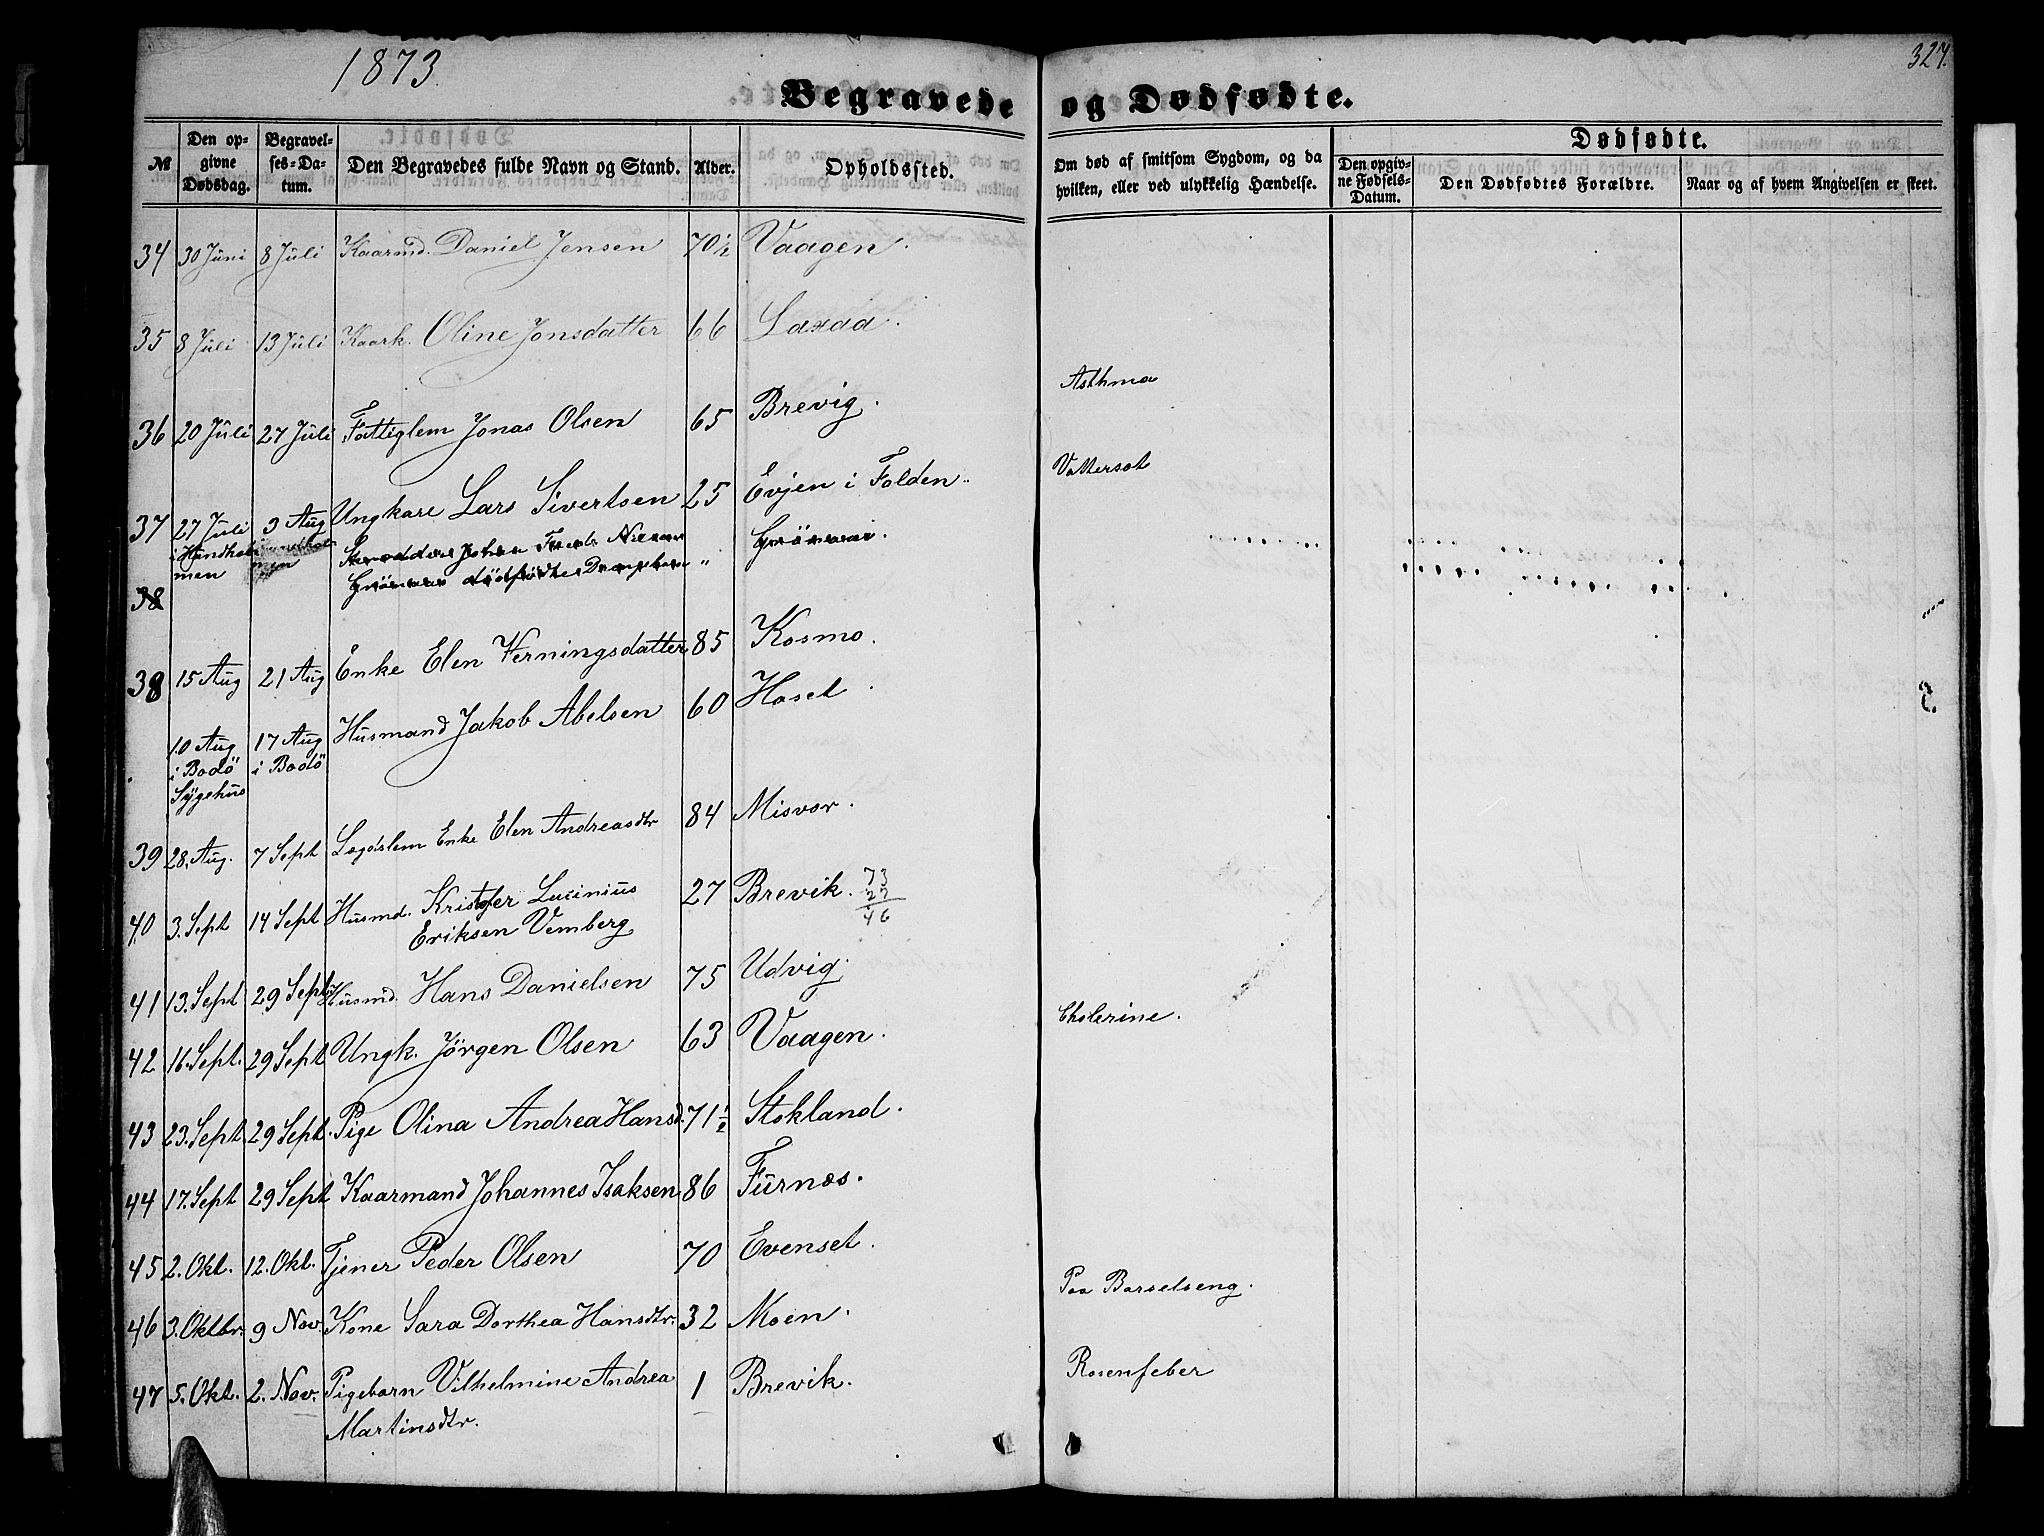 1873.
327.
Begravede og Dødfødte.
№
Den opgivne Dødsdag.
Begravelses-Datum.
Den Begravedes fulde Navn og Stand.
Alder.
Opholdssted.
Om død af smitsom Sygdom, og da hvilken, eller ved ulykkelig Hændelse.
Dødfødte.
Den opgivne Fødsels-Datum.
Den Dødfødtes Forældre.
Naar og af hvem Angivelsen er skeet.
34 30 Juni 8 Juli Kaarmd. Daniel Jensen 70½ Vaagen.
35 8 Juli 13 Juli Kaark. Oline Jonsdatter 66 Laxaa.
36 20 Juli 27 Juli Fattiglem Jonas Olsen 65 Brevig. Asthma
37 27 Juli 3 Aug Ungkare Lars Sivertsen 25 Evjen i Folden. Vattersot
i Hundholmen
38 Johan dødfødte Drengebarn „
38 15 Aug 21 Aug Enke Elen Verningsdatter 85 Kosmo.
10 Aug 17 Aug Husmand Jakob Abelsen 60 Haset.
i Bodö i Bodö
Sygehus
39 28. Aug. 7 Sept Lægdslem Enke Elen Andreasdtr 84 Misvær.
40 3. Sept 14 Sept Husmd. Kristofer Lucinius 27 Brevik. 73
27
46
Eriksen Vemberg
41 13. Sept 29 Sept. Husmd. Hans Danielsen 75 Udvig.
42 16. Sept. 29 Sept Ungk. Jörgen Olsen 63 Vaagen. Cholerine.
43 23. Sept. 29 Sept. Pige Olina Andrea Hansd. 71½ Stokland.
44 17. Sept 29 Sept Kaarmand Johannes Isaksen 86 Furnæs.
45 2. Okt. 12. Okt. Tjener Peder Olsen 70 Evenset.
46 3. Oktbr. 9 Nov. Kone Sara Dorthea Hansdtr. 32 Moen. Paa Barselseng.
47 5. Okt. 2. Nov. Pigebarn Vilhelmine Andrea 1 Brevik. Rosenfeber
Martinsdtr.